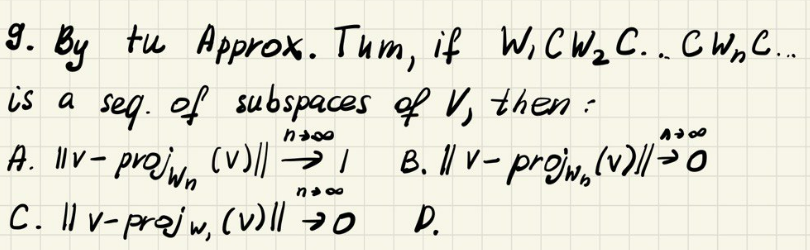 9. By tu Approx. Tum, if W₁ ⊂ W₂ ⊂ . . ⊂ Wₙ ⊂ ...
is a seq. of subspaces of V, then :
A. ||v - proj_Wₙ (v)|| →^{n→∞} 1 B. || v - proj_Wₙ (v)|| →^{n→∞} 0
C. || v - proj_W₁ (v)|| →^{n→∞} 0 D.